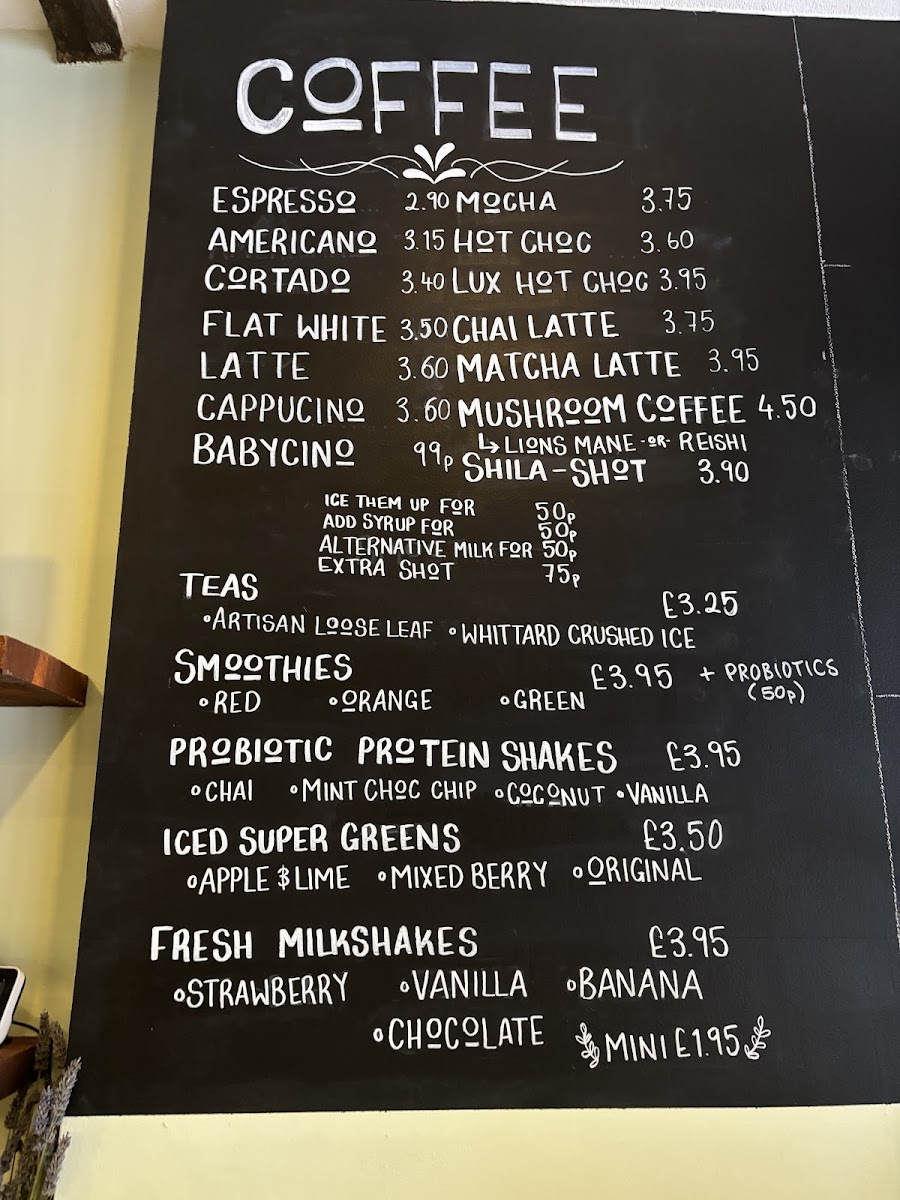 COFFEE
ESPRESSO 2.90 MOCHA 3.75
AMERICANO 3.15 HOT CHOC 3.60
CORTADO 3.40 LUX HOT CHOC 3.95
FLAT WHITE 3.50 CHAI LATTE 3.75
LATTE 3.60 MATCHA LATTE 3.95
CAPPUCINO 3.60 MUSHROOM COFFEE 4.50
↳ LIONS MANE -OR- REISHI
BABYCINO 99p SHILA-SHOT 3.90
ICE THEM UP FOR 50p
ADD SYRUP FOR 50p
ALTERNATIVE MILK FOR 50p
EXTRA SHOT 75p
TEAS £3.25
•ARTISAN LOOSE LEAF •WHITTARD CRUSHED ICE
SMOOTHIES £3.95 + PROBIOTICS
(50p)
•RED •ORANGE •GREEN
PROBIOTIC PROTEIN SHAKES £3.95
•CHAI •MINT CHOC CHIP •COCONUT •VANILLA
ICED SUPER GREENS £3.50
•APPLE $ LIME •MIXED BERRY •ORIGINAL
FRESH MILKSHAKES £3.95
•STRAWBERRY •VANILLA •BANANA
•CHOCOLATE MINI £1.95